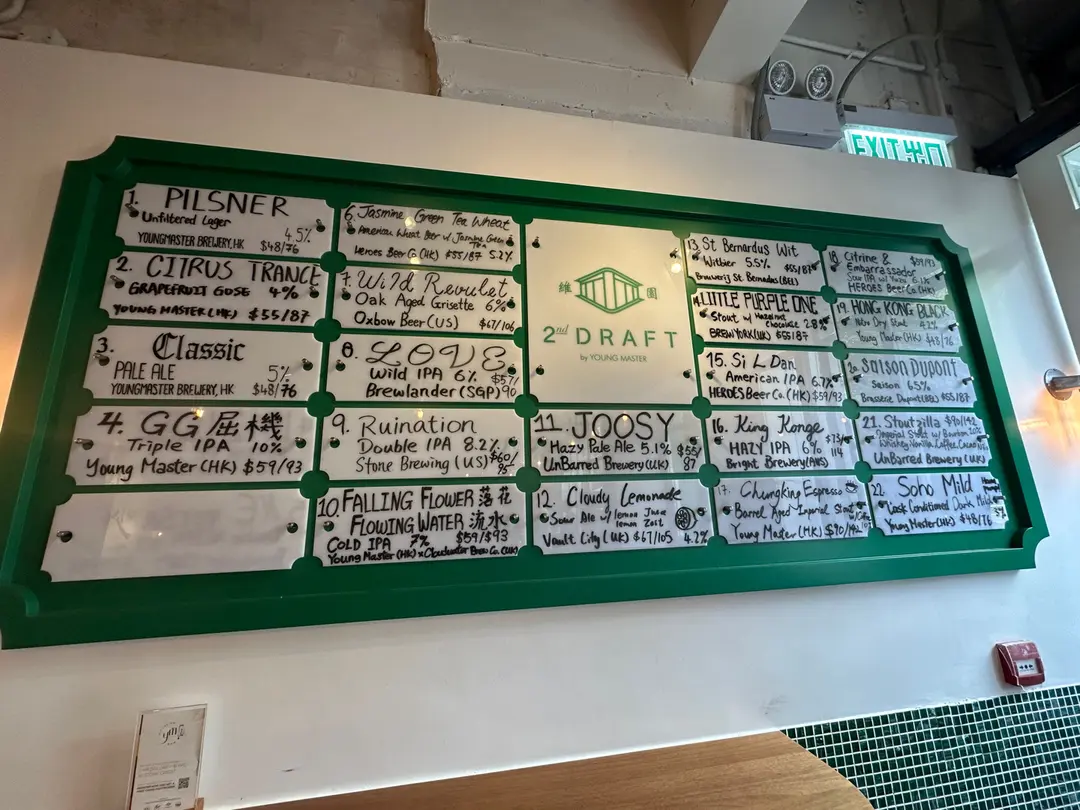 1. PILSNER
Unfiltered Lager 4.5%
YOUNGMASTER BREWERY, HK $48/76
2. CITRUS TRANCE
GRAPEFRUIT GOSE 4%
YOUNG MASTER (HK) $55/87
3. Classic
PALE ALE 5%
YOUNGMASTER BREWERY, HK $48/76
4. GG 屈機
Triple IPA 10%
Young Master (HK) $59/93
6. Jasmine Green Tea Wheat
American Wheat Beer w/ Jasmine Green Tea
Heroes Beer Co. (HK) $55/87 5.2%
7. Wild Revulet
Oak Aged Grisette 6%
Oxbow Beer (US) $67/106
8. LOVE
Wild IPA 6% $57/
Brewlander (SGP) 90
9. Ruination
Double IPA 8.2%
Stone Brewing (US) $60/
95
10. FALLING FLOWER 落花
FLOWING WATER 流水
COLD IPA 7% $59/$93
Young Master (HK) x Cloudwater Brew Co. (UK)
維園
2nd DRAFT
by YOUNG MASTER
11. JOOSY
Hazy Pale Ale 5.1% $55/
UnBarred Brewery (UK) 87
12. Cloudy Lemonade
Sour Ale w/ lemon Juice
lemon Zest
Vault City (UK) $67/105 4.2%
13. St Bernardus Wit
Witbier 5.5% $55/87
Brouwerij St. Bernadus (BEL)
14. LITTLE PURPLE ONE
Stout w/ Hazelnut
Chocolate 2.8%
BREWYORK (UK) $55/87
15. Si L Dan
American IPA 6.7%
HEROES Beer Co. (HK) $59/93
16. King Konge
HAZY IPA 6% $73/
Bright Brewery (AUS) 114
17. Chungking Espresso
Barrel Aged Imperial Stout
Young Master (HK) $90/142
18. Citrine & $59/93
Embarrassador
Sour IPA w/ Yuzu 6.1%
HEROES Beer Co. (HK)
19. HONG KONG BLACK
Nitro Dry Stout 4.2%
Young Master (HK) $48/76
20. Saison Dupont
Saison 6.5%
Brasserie Dupont (BEL) $55/87
21. Stoutzilla $90/142
Imperial Stout w/ Bourbon
Whiskey, Vanilla, Coffee, Cacao
UnBarred Brewery (UK)
22. Soho Mild
Cask Conditioned Dark Mild
3%
Young Master (HK) $48/76
EXIT 出口
ym